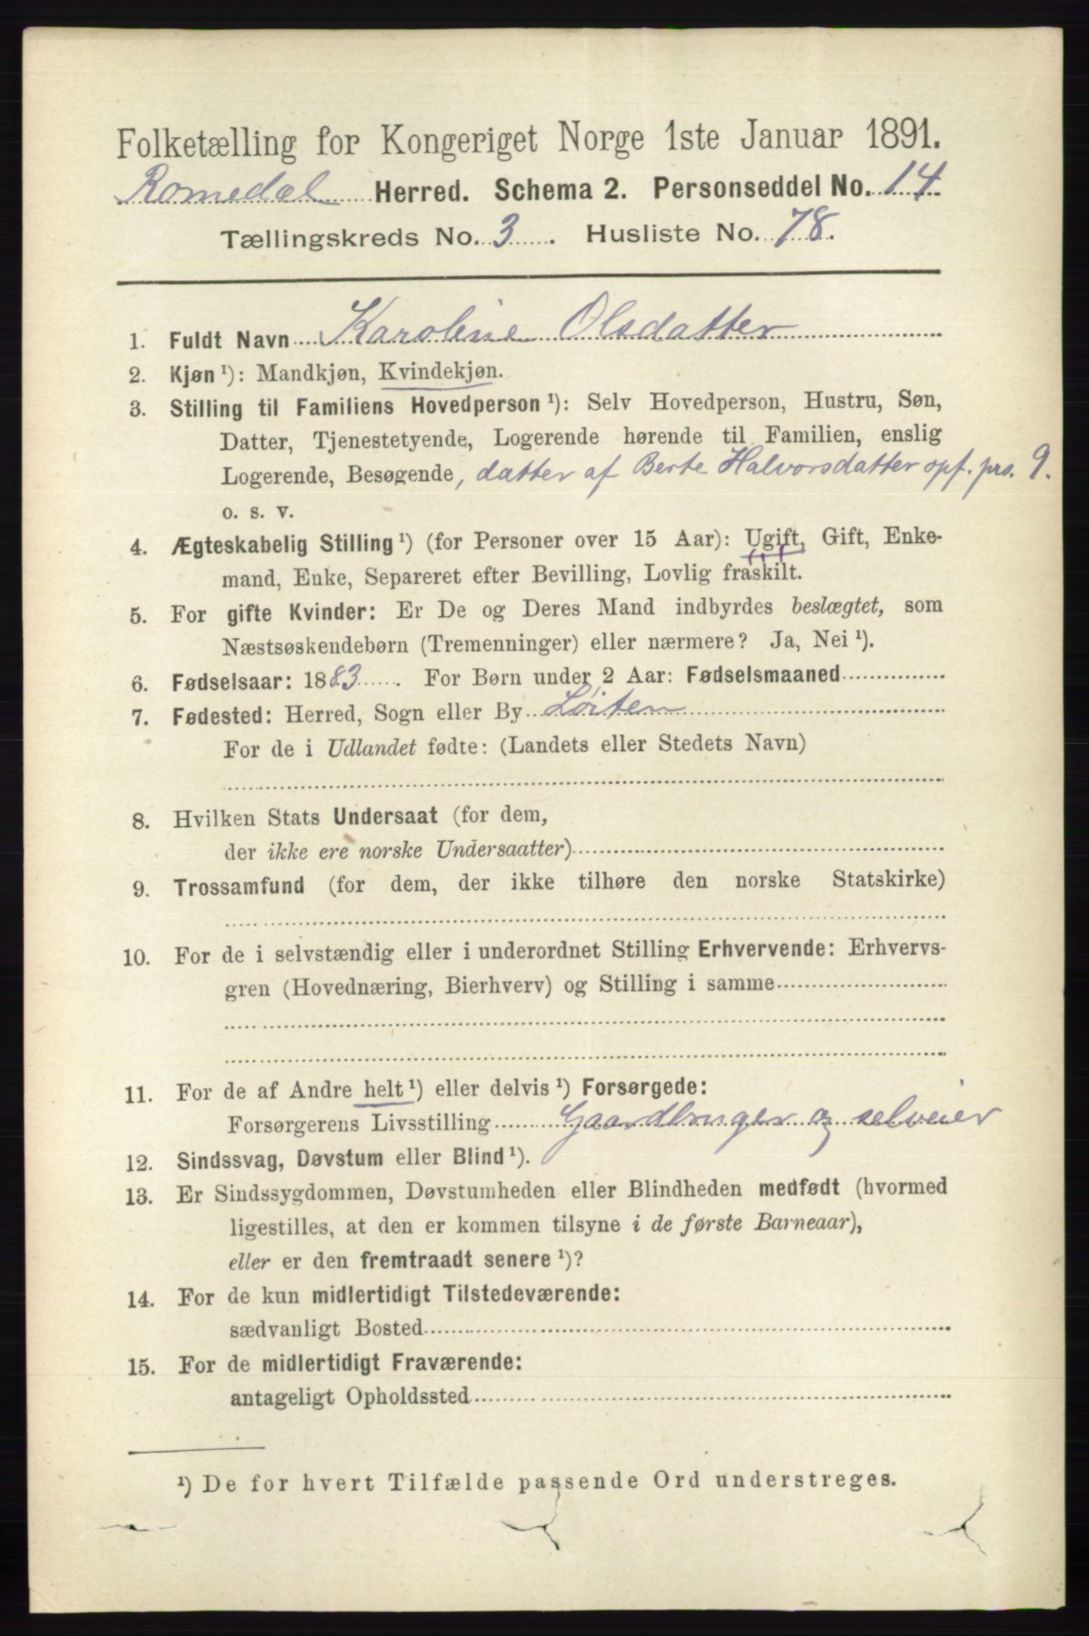 Folketælling for Kongeriget Norge 1ste Januar 1891.
Romedal Herred. Schema 2. Personseddel No. 14
Tællingskreds No. 3. Husliste No. 78.
1. Fuldt Navn Karoline Olsdatter
2. Kjøn ¹): Mandkjøn, Kvindekjøn.
3. Stilling til Familiens Hovedperson ¹): Selv Hovedperson, Hustru, Søn,
Datter, Tjenestetyende, Logerende hørende til Familien, enslig
Logerende, Besøgende, datter af Berte Halvorsdatter opf. prs. 9.
o. s. v.
4. Ægteskabelig Stilling ¹) (for Personer over 15 Aar): Ugift, Gift, Enke-
mand, Enke, Separeret efter Bevilling, Lovlig fraskilt.
5. For gifte Kvinder: Er De og Deres Mand indbyrdes beslægtet, som
Næstsøskendebørn (Tremenninger) eller nærmere? Ja, Nei ¹).
6. Fødselsaar: 1883. For Børn under 2 Aar: Fødselsmaaned
7. Fødested: Herred, Sogn eller By Løiten
For de i Udlandet fødte: (Landets eller Stedets Navn)
8. Hvilken Stats Undersaat (for dem,
der ikke ere norske Undersaatter)
9. Trossamfund (for dem, der ikke tilhøre den norske Statskirke)
10. For de i selvstændig eller i underordnet Stilling Erhvervende: Erhvervs-
gren (Hovednæring, Bierhverv) og Stilling i samme
11. For de af Andre helt ¹) eller delvis ¹) Forsørgede:
Forsørgerens Livsstilling Gaardbruger og selveier
12. Sindssvag, Døvstum eller Blind ¹).
13. Er Sindssygdommen, Døvstumheden eller Blindheden medfødt (hvormed
ligestilles, at den er kommen tilsyne i de første Barneaar),
eller er den fremtraadt senere ¹)?
14. For de kun midlertidigt Tilstedeværende:
sædvanligt Bosted
15. For de midlertidigt Fraværende:
antageligt Opholdssted
¹) De for hvert Tilfælde passende Ord understreges.